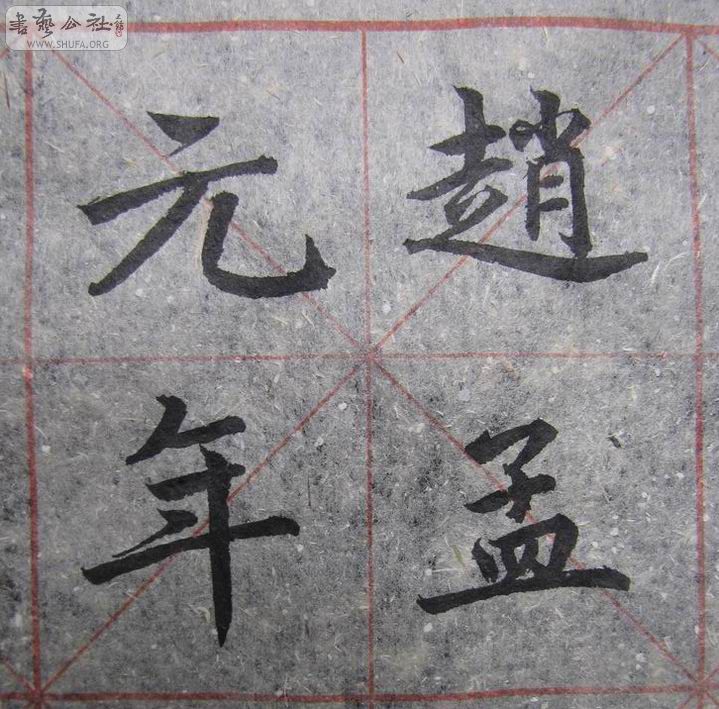 趙孟
元年
書藝公社
WWW.SHUFA.ORG